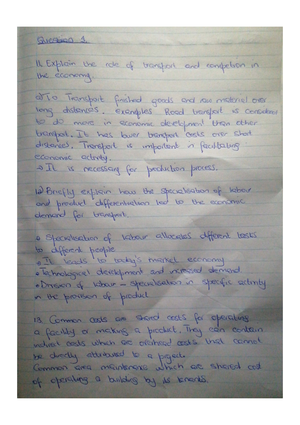 Question 1
1.1. Explain the role of transport and competition in
the economy.
To Transport finished goods and raw material over
long distances, examples Road transport is considered
to do more in economic development than other
transport. It has lower transport costs over short
distances. Transport is important in facilitating
economic activity.
It is necessary for production process.
1.2 Briefly explain how the specialisation of labour
and product differentiation led to the economic
demand for transport.
Specialisation of labour allocates different tasks
to different people
It leads to today's market economy
Technological development and increased demand
Division of labour - specialisation in specific activity
in the provision of product
1.3. Common costs are shared costs for operating
a facility or making a product. They can contain
which are overhead costs that cannot
be directly attributed to a project.
Common area maintenance which are shared cost
of operating a building by its tenants.